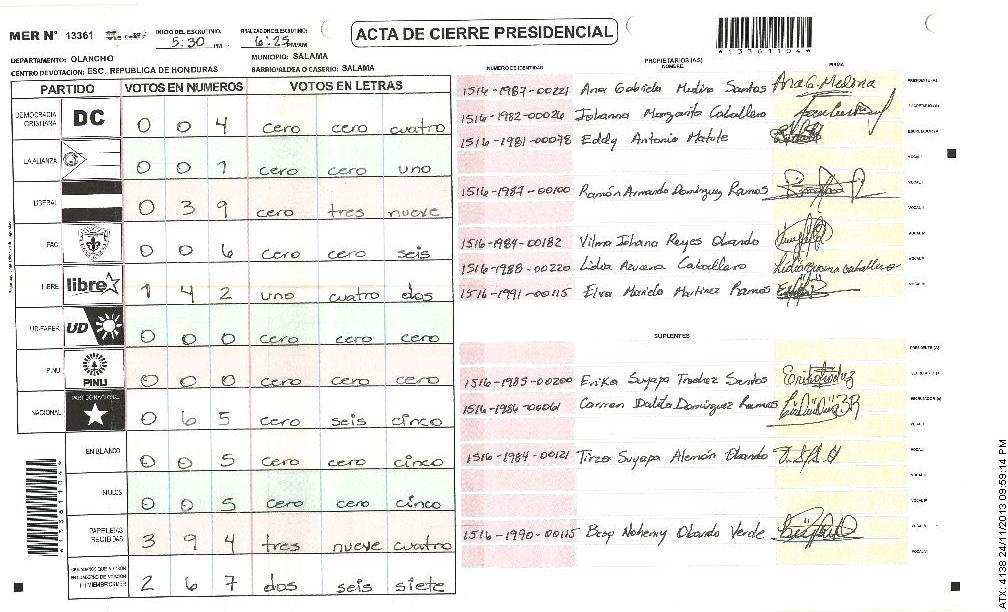 MER Nº 13361
INICIO DEL ESCRUTINIO: 5:30 PM
FINALIZACION DEL ESCRUTINIO: 6:25 PM/AM
ACTA DE CIERRE PRESIDENCIAL
A133611044
DEPARTAMENTO: OLANCHO
MUNICIPIO: SALAMA
CENTRO DE VOTACION: ESC. REPUBLICA DE HONDURAS
BARRIO/ALDEA O CASERIO: SALAMA
PARTIDO VOTOS EN NUMEROS VOTOS EN LETRAS
DEMOCRACIA CRISTIANA DC 0 0 4 cero cero cuatro
LA ALIANZA 0 0 1 cero cero uno
LIBERAL 0 3 9 cero tres nueve
PAC 0 0 6 cero cero seis
LIBRE libre 1 4 2 uno cuatro dos
UD-FAPER UD 0 0 0 cero cero cero
PINU PINU 0 0 0 cero cero cero
NACIONAL PARTIDO NACIONAL 0 6 5 cero seis cinco
EN BLANCO 0 0 5 cero cero cinco
NULOS 0 0 5 cero cero cinco
PAPELETAS RECIBIDAS 3 9 4 tres nueve cuatro
2 6 7 dos seis siete
PROPIETARIOS (AS)
NUMERO DE IDENTIDAD NOMBRE FIRMA
1516-1987-00221 Ana Gabriela Medina Santos Ana G. Medina PRESIDENTE (A)
1516-1982-00026 Johanna Margarita Caballero SECRETARIO (A)
1516-1981-00078 Eddy Antonio Matute ESCRUTADOR (A)
VOCAL I
1516-1987-00100 Ramón Armando Domínguez Ramos
1516-1984-00182 Vilma Johana Reyes Obando
1516-1988-00220 Lidia Azucena Caballero Lidia Azucena Caballero
1516-1991-00115 Elva Mariela Martinez Ramos
SUPLENTES
PRESIDENTE (A)
1516-1985-00200 Erika Suyapa Trochez Santos SECRETARIO (A)
1516-1986-00061 Carmen Dalila Domínguez Ramos ESCRUTADOR (A)
1516-1984-00121 Tirza Suyapa Alemán Obando
1516-1990-00115 Besy Nohemy Obando Verde
A133611044
ATX: 4138 24/11/2013 09:59:14 PM